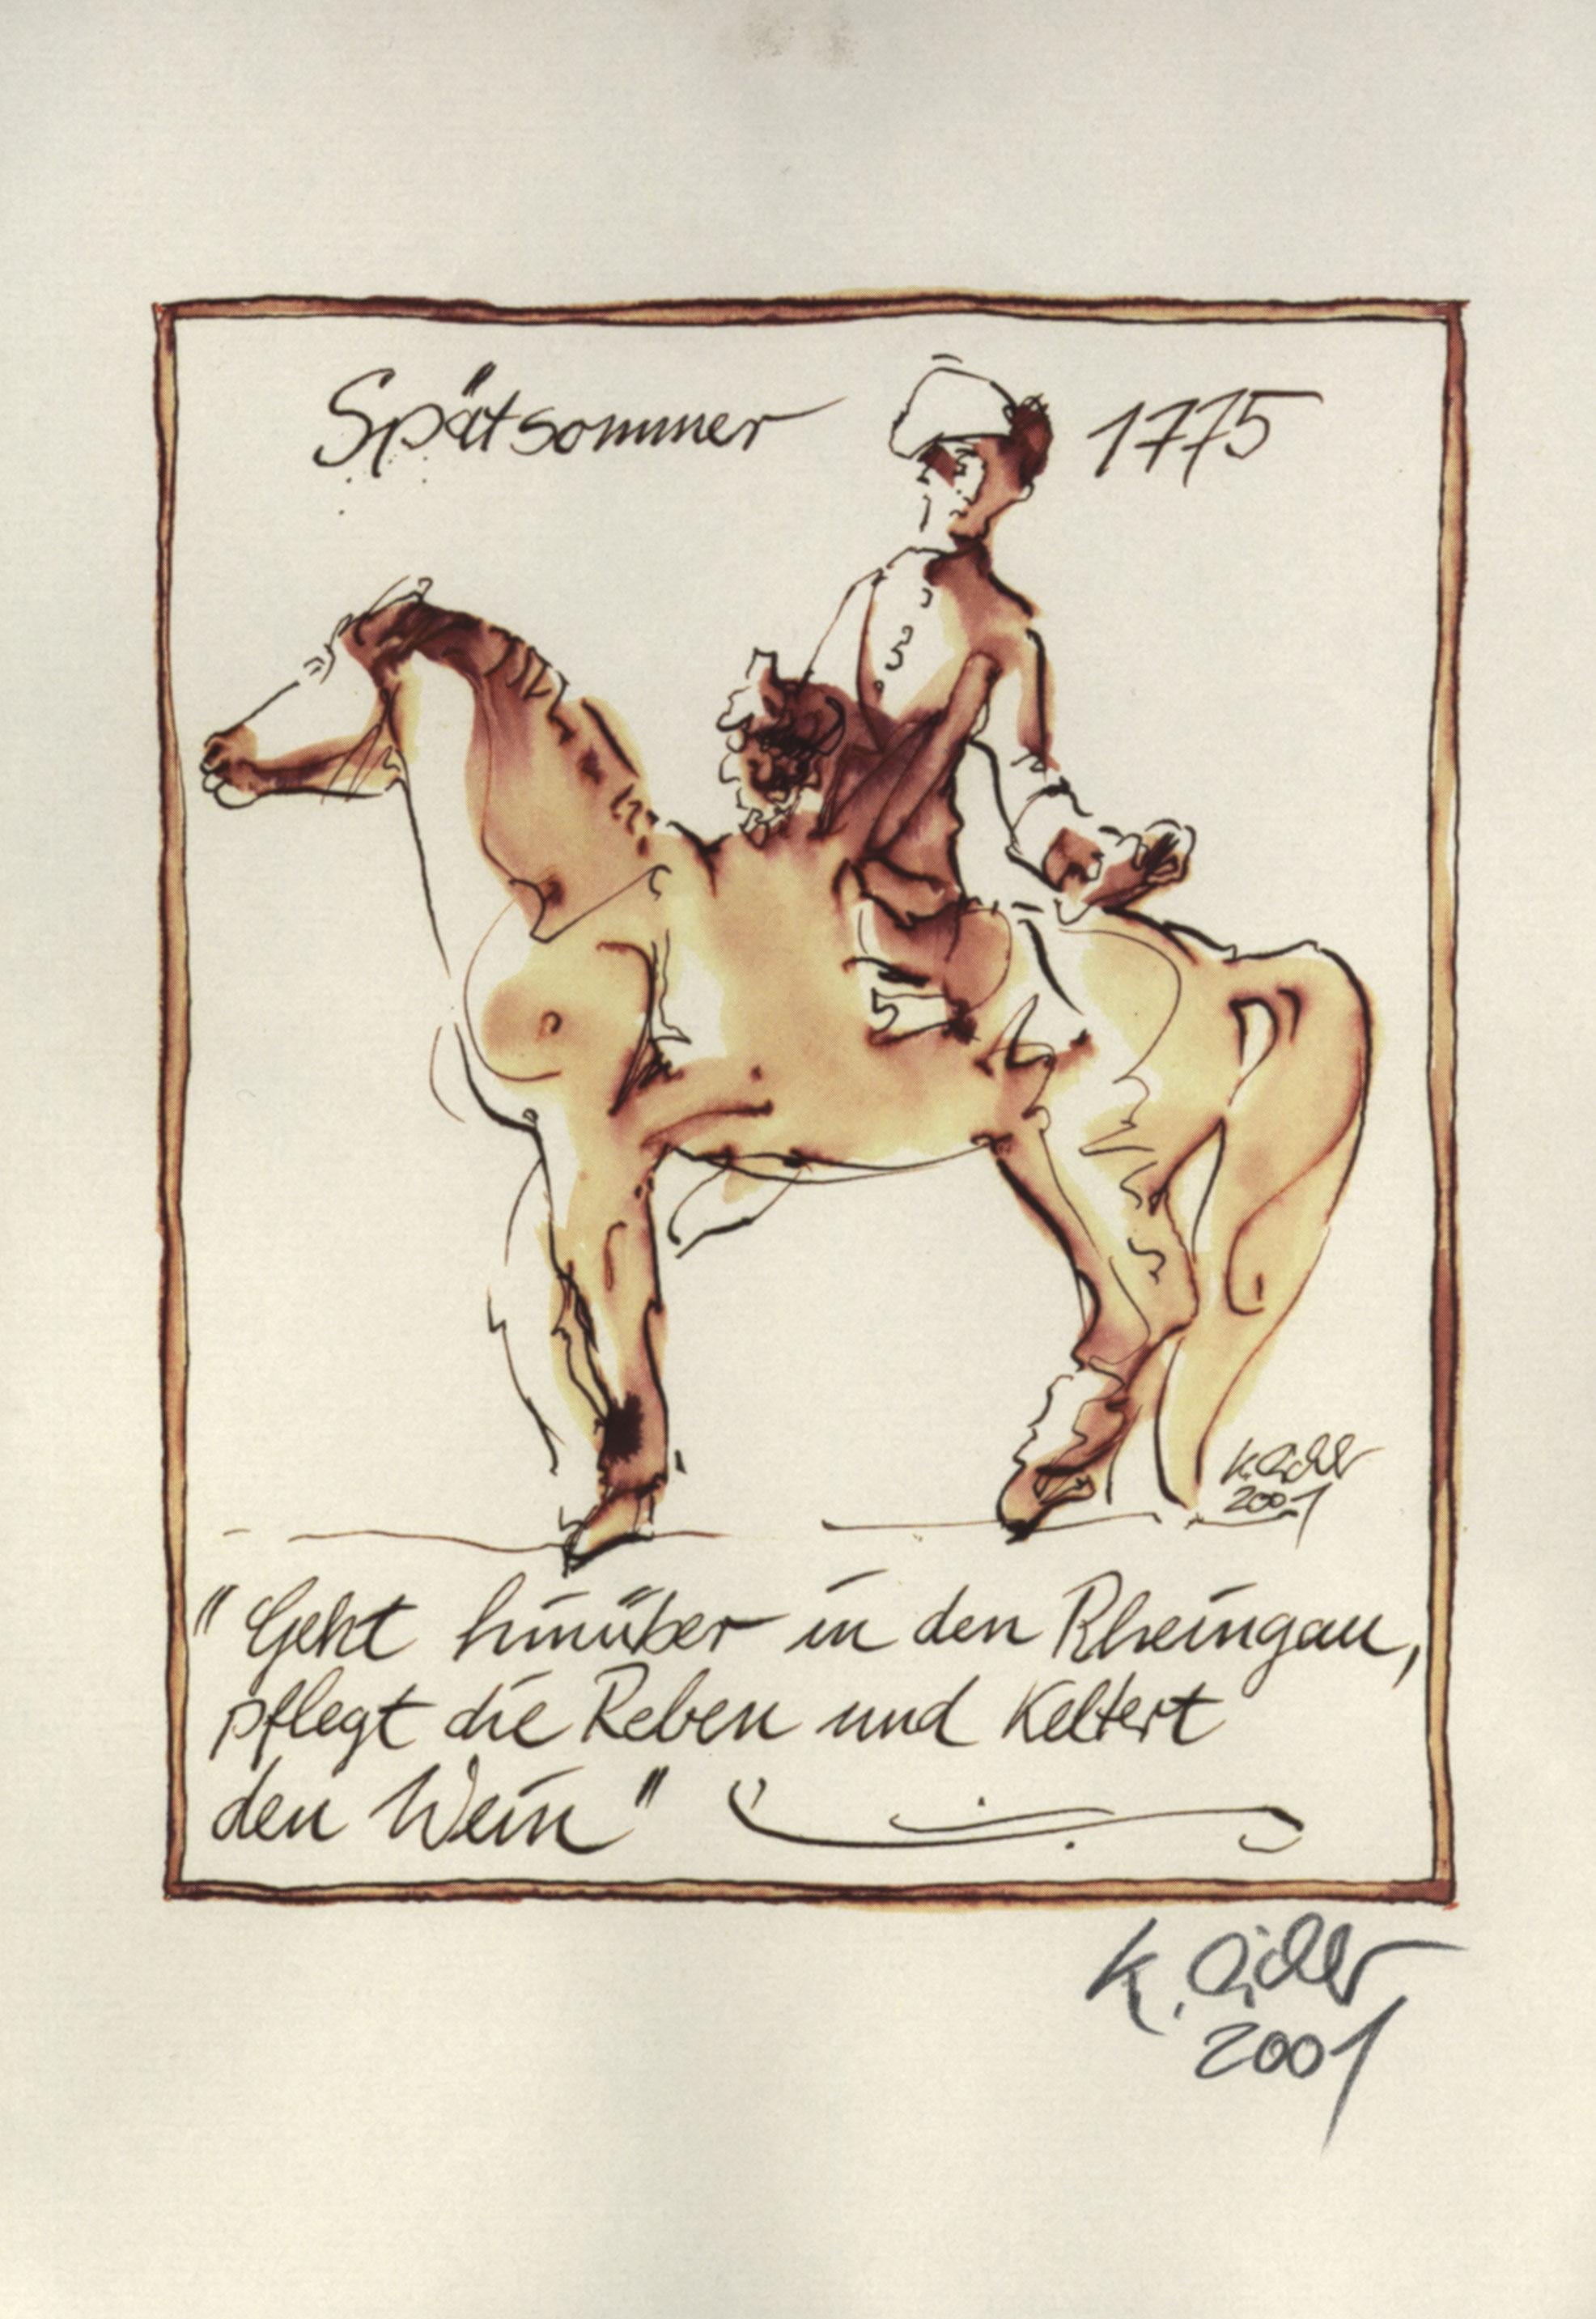 Spätsommer 1775
2001
"Geht hinüber in den Rheingau,
pflegt die Reben und Keltert
den Wein"
K.
2001